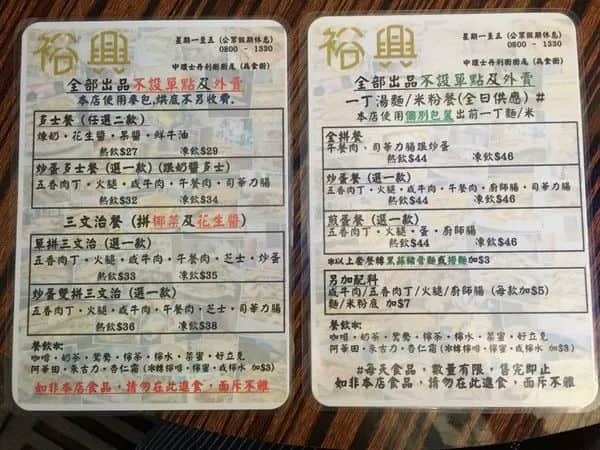 裕興
星期一至五 (公眾假期休息)
0800 - 1330
中環士丹利街街尾 (為食街)
全部出品不設單點及外賣
本店使用麥包,烘底不另收費.
多士餐 (任選二款)
煉奶・花生醬・果醬・鮮牛油
熱飲$27 凍飲$29
炒蛋多士餐 (選一款) (跟奶醬多士)
五香肉丁・火腿・咸牛肉・午餐肉・司華力腸
熱飲$32 凍飲$34
三文治餐 (拼椰菜及花生醬)
單拼三文治 (選一款)
五香肉丁・火腿・咸牛肉・午餐肉・芝士・炒蛋
熱飲$33 凍飲$35
炒蛋雙拼三文治 (選一款)
五香肉丁・火腿・咸牛肉・午餐肉・芝士・司華力腸
熱飲$36 凍飲$38
餐飲:
咖啡・奶茶・鴛鴦・檸茶・檸水・菜蜜・好立克
阿華田・朱古力・杏仁霜 (冰檸檸啡・檸蜜・或檸水 加$3)
如非本店食品，請勿在此進食，面斥不雅
裕興
星期一至五 (公眾假期休息)
0800 - 1330
中環士丹利街街尾 (為食街)
全部出品不設單點及外賣
一丁湯麵/米粉餐(全日供應) #
本店使用個別包裝出前一丁麵/米
全拼餐
午餐肉、司華力腸跟炒蛋
熱飲$44 凍飲$46
炒蛋餐 (選一款)
五香肉丁・火腿・咸牛肉・午餐肉・廚師腸・司華力腸
熱飲$44 凍飲$46
煎蛋餐 (選一款)
五香肉丁・火腿・蛋・廚師腸
熱飲$44 凍飲$46
*以上套餐轉黑蒜豬骨麵或撈麵加$3
另加配料
咸牛肉/五香肉丁/火腿/廚師腸 (每款加$5)
麵/米粉底 加$7
餐飲:
咖啡・奶茶・鴛鴦・檸茶・檸水・菜蜜・好立克
阿華田・朱古力・杏仁霜 (冰檸檸啡・檸蜜・或檸水 加$3)
#每天食品，數量有限，售完即止
如非本店食品，請勿在此進食，面斥不雅